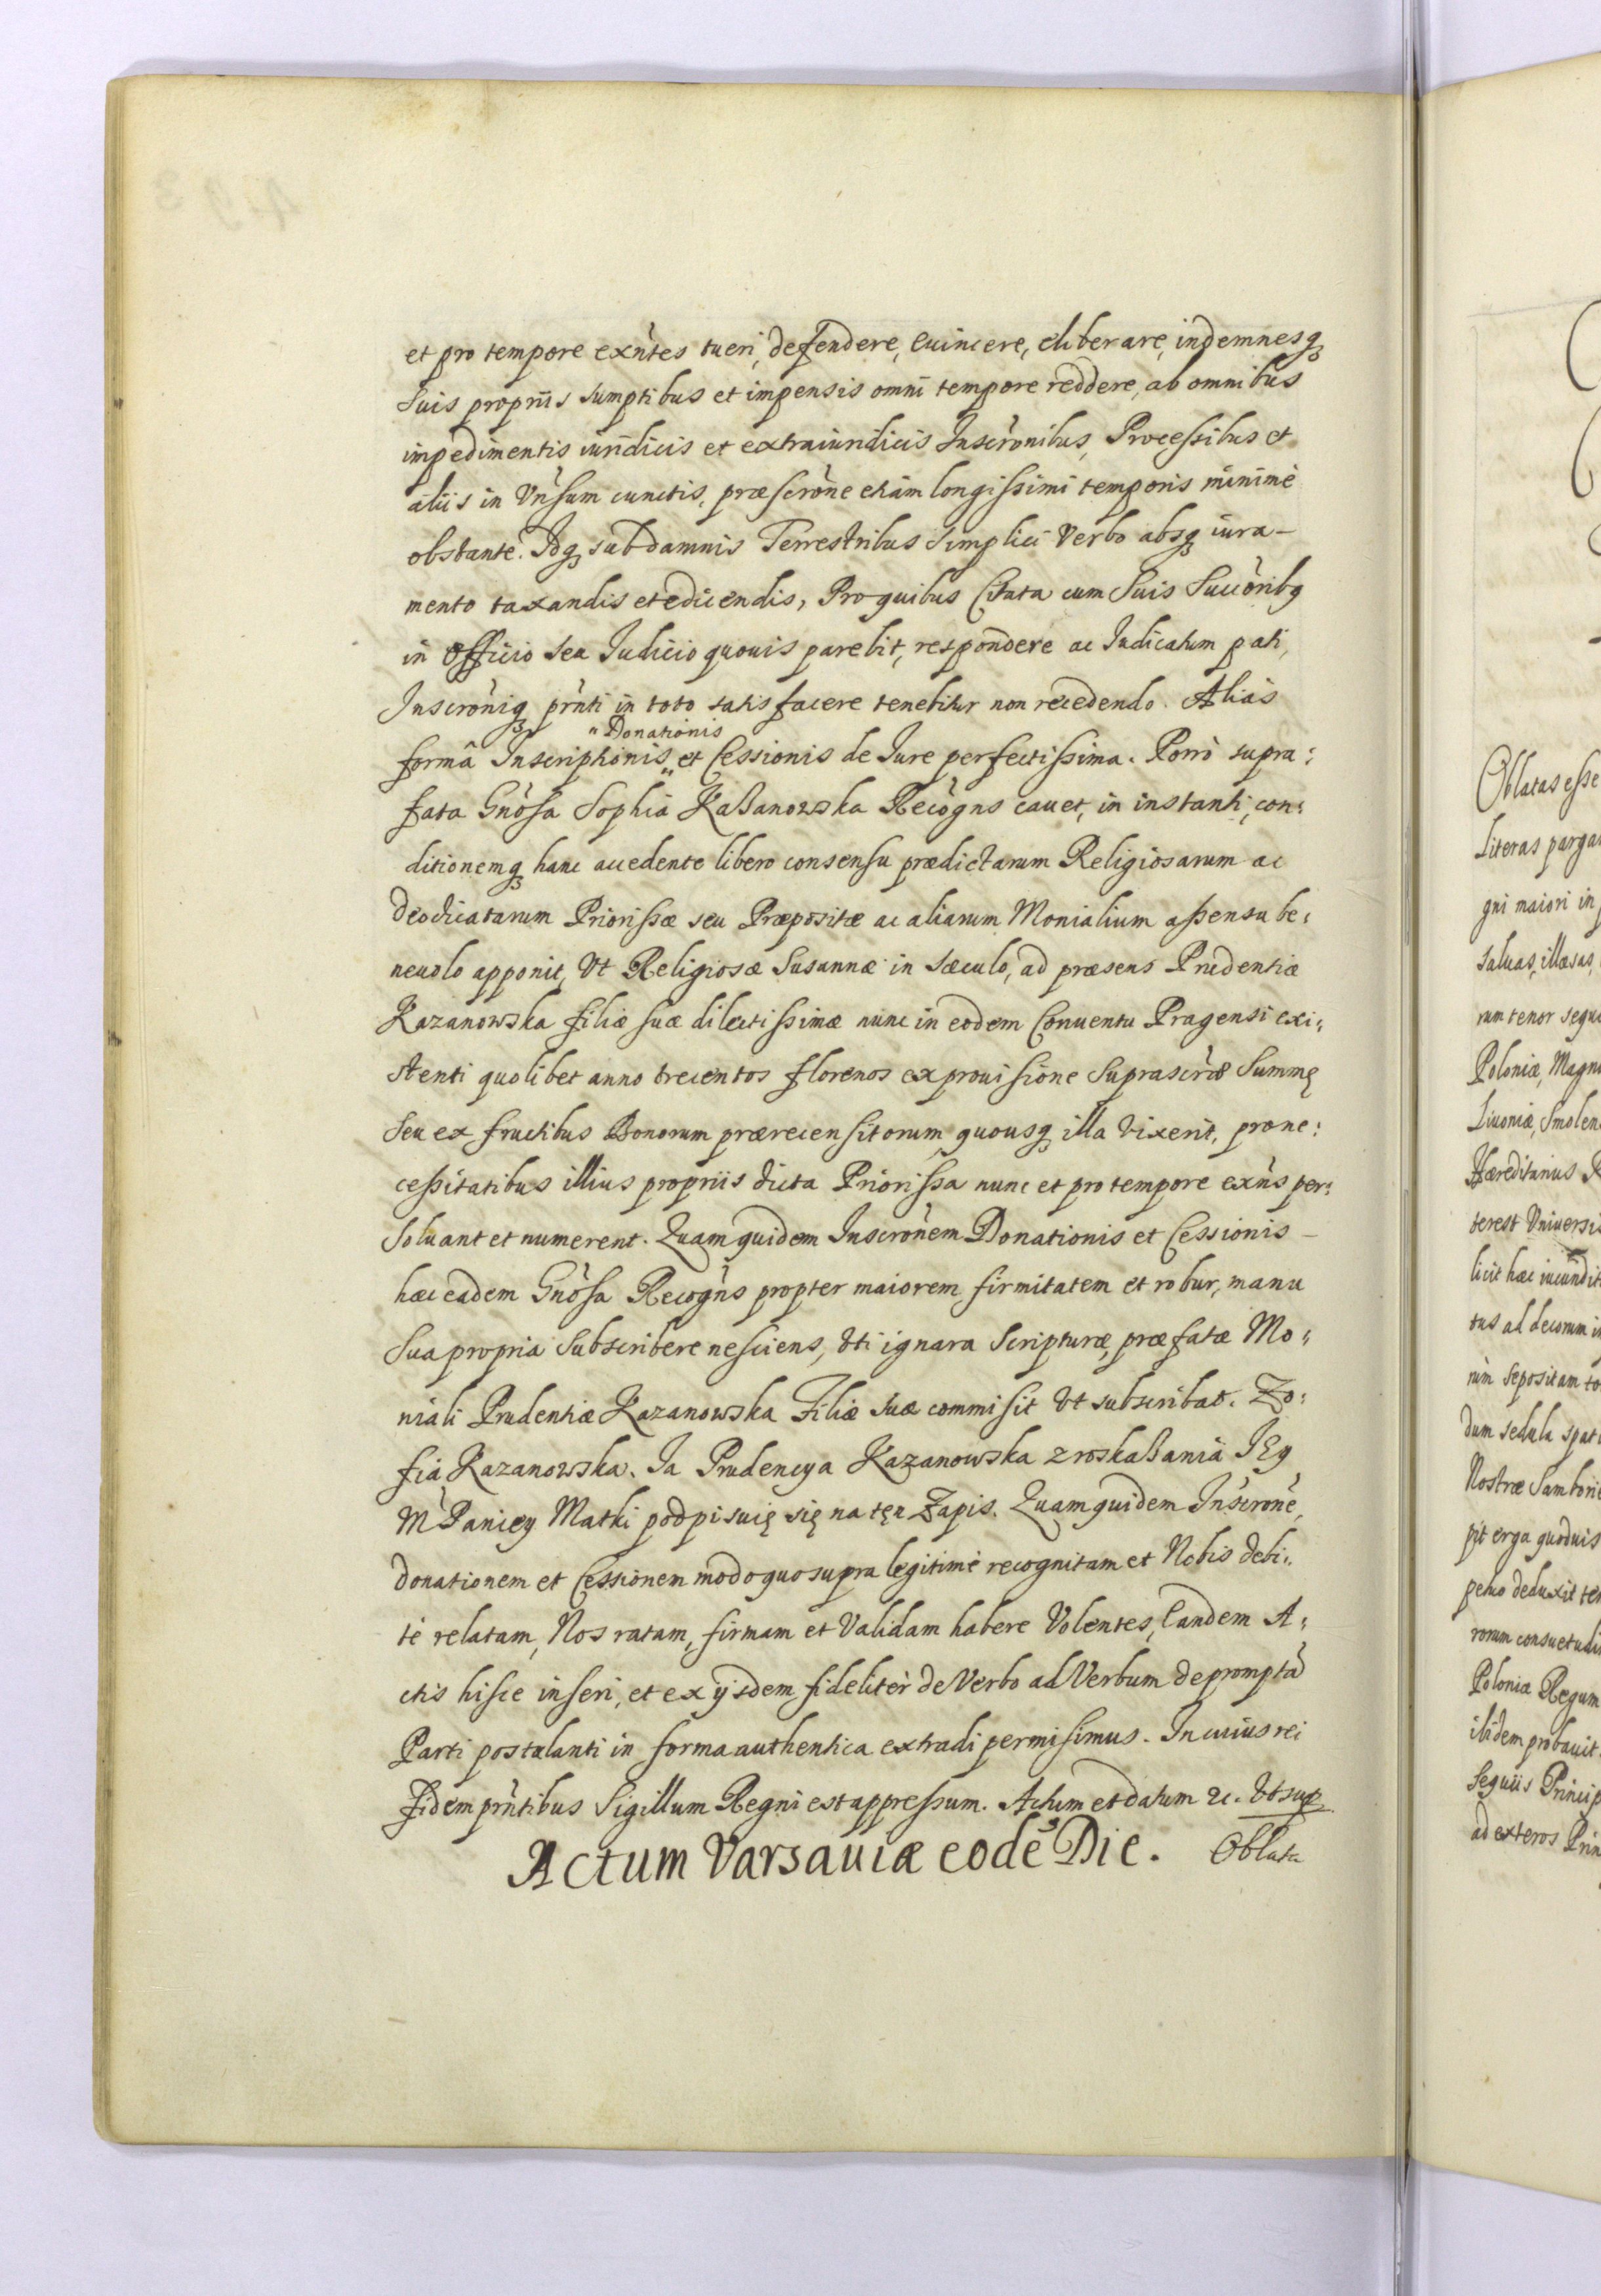 et pro tempore exñtes tueri, defendere, euincere, eliberare, indemnesqȝ
suis proprijs sumptibus et impensis omni tempore reddere, ab omnibus
impedimentis iuridicis et extraiuridicis Inscrõnibus, Processibus et
alijs in Vñsum cunctis, præscrõne etiam longissimi temporis minimè
obstante. Idqȝ sub damnis Terrestribus simplici Verbo absqȝ iura-
mento taxandis et edicendis, Pro quibus Citata cum suis Succõribꝗ
in Officio seu Iudicio quouis parebit, respondere ac Iudicatum pati,
Inscrõniqȝ prñti in toto satisfacere tenebitur non recedendo. Alias
"Donationis
formâ Inscriptionis " et Cessionis de Iure perfectissima. Porrò supra:
fata Gñosa Sophia Kaßanowska Recogñs cauet, in instanti, con:
ditionemqȝ hanc accedente libero consensu prædictarum Religiosarum ac
deodicatarum Priorissæ seu Præpositæ ac aliarum Monialium assensu be:
neuolo apponit, Vt Religiosæ Susannæ in sæculo, ad præsens Prudentiæ
Kazanowska filiæ suæ dilectissimæ nunc in eodem Conuentu Pragensi exi:
stenti quolibet anno trecentos florenos ex prouisione suprascræ Summę
seu ex fructibus Bonorum prærecensitorum quousqȝ illa vixerit, pro ne:
cessitatibus illius propriis dicta Priorissa nunc et pro tempore exñs per:
soluant et numerent. Quam quidem Inscrõnem Donationis et Cessionis –
hæc eadem Gñosa Recogñs propter maiorem firmitatem et robur, manu
sua propria subscribere nesciens, vti ignara Scripturæ, præfatæ Mo:
niali Prudentiæ Kazanowska Filiæ suæ commisit Vt subscribat. Zo:
fia Kazanowska. Ia Prudencya Kazanowska z roskaßania IEy
M Paniey Matki podpisuię się na tęn Zapis. Quam quidem Inscrõne,
donationem et Cessionem modo quo supra legitimè recognitam et Nobis debi:
tè relatam, Nos ratam, firmam et Validam habere Volentes, Eandem A:
ctis hisce inseri, et ex ijsdem fideliter de Verbo ad Verbum depromptã
Parti postulanti in forma authentica extradi permisimus. In cuius rei
fidem prñtibus Sigillum Regni est appressum. Actum et datum &c. Vt sup
Actum Varsauiæ eodẽ Die. Oblata
Oblatas esse
Literas parga
gni maiori in
saluas, illæsas,
rum tenor sequ
Poloniæ, Magn
Liuoniæ, Smolen
Hæreditarius R
terest Vniuersi
licit hæc iucundit
tus ad decorum i
rum sepositam to
dum sedula spat
Nostræ Samborie
pit erga quoduis
petuo deduxit te
rorum consuetudi
Poloniæ Regum
ibidem probauit.
sequiis Princip
ad exteros Prin